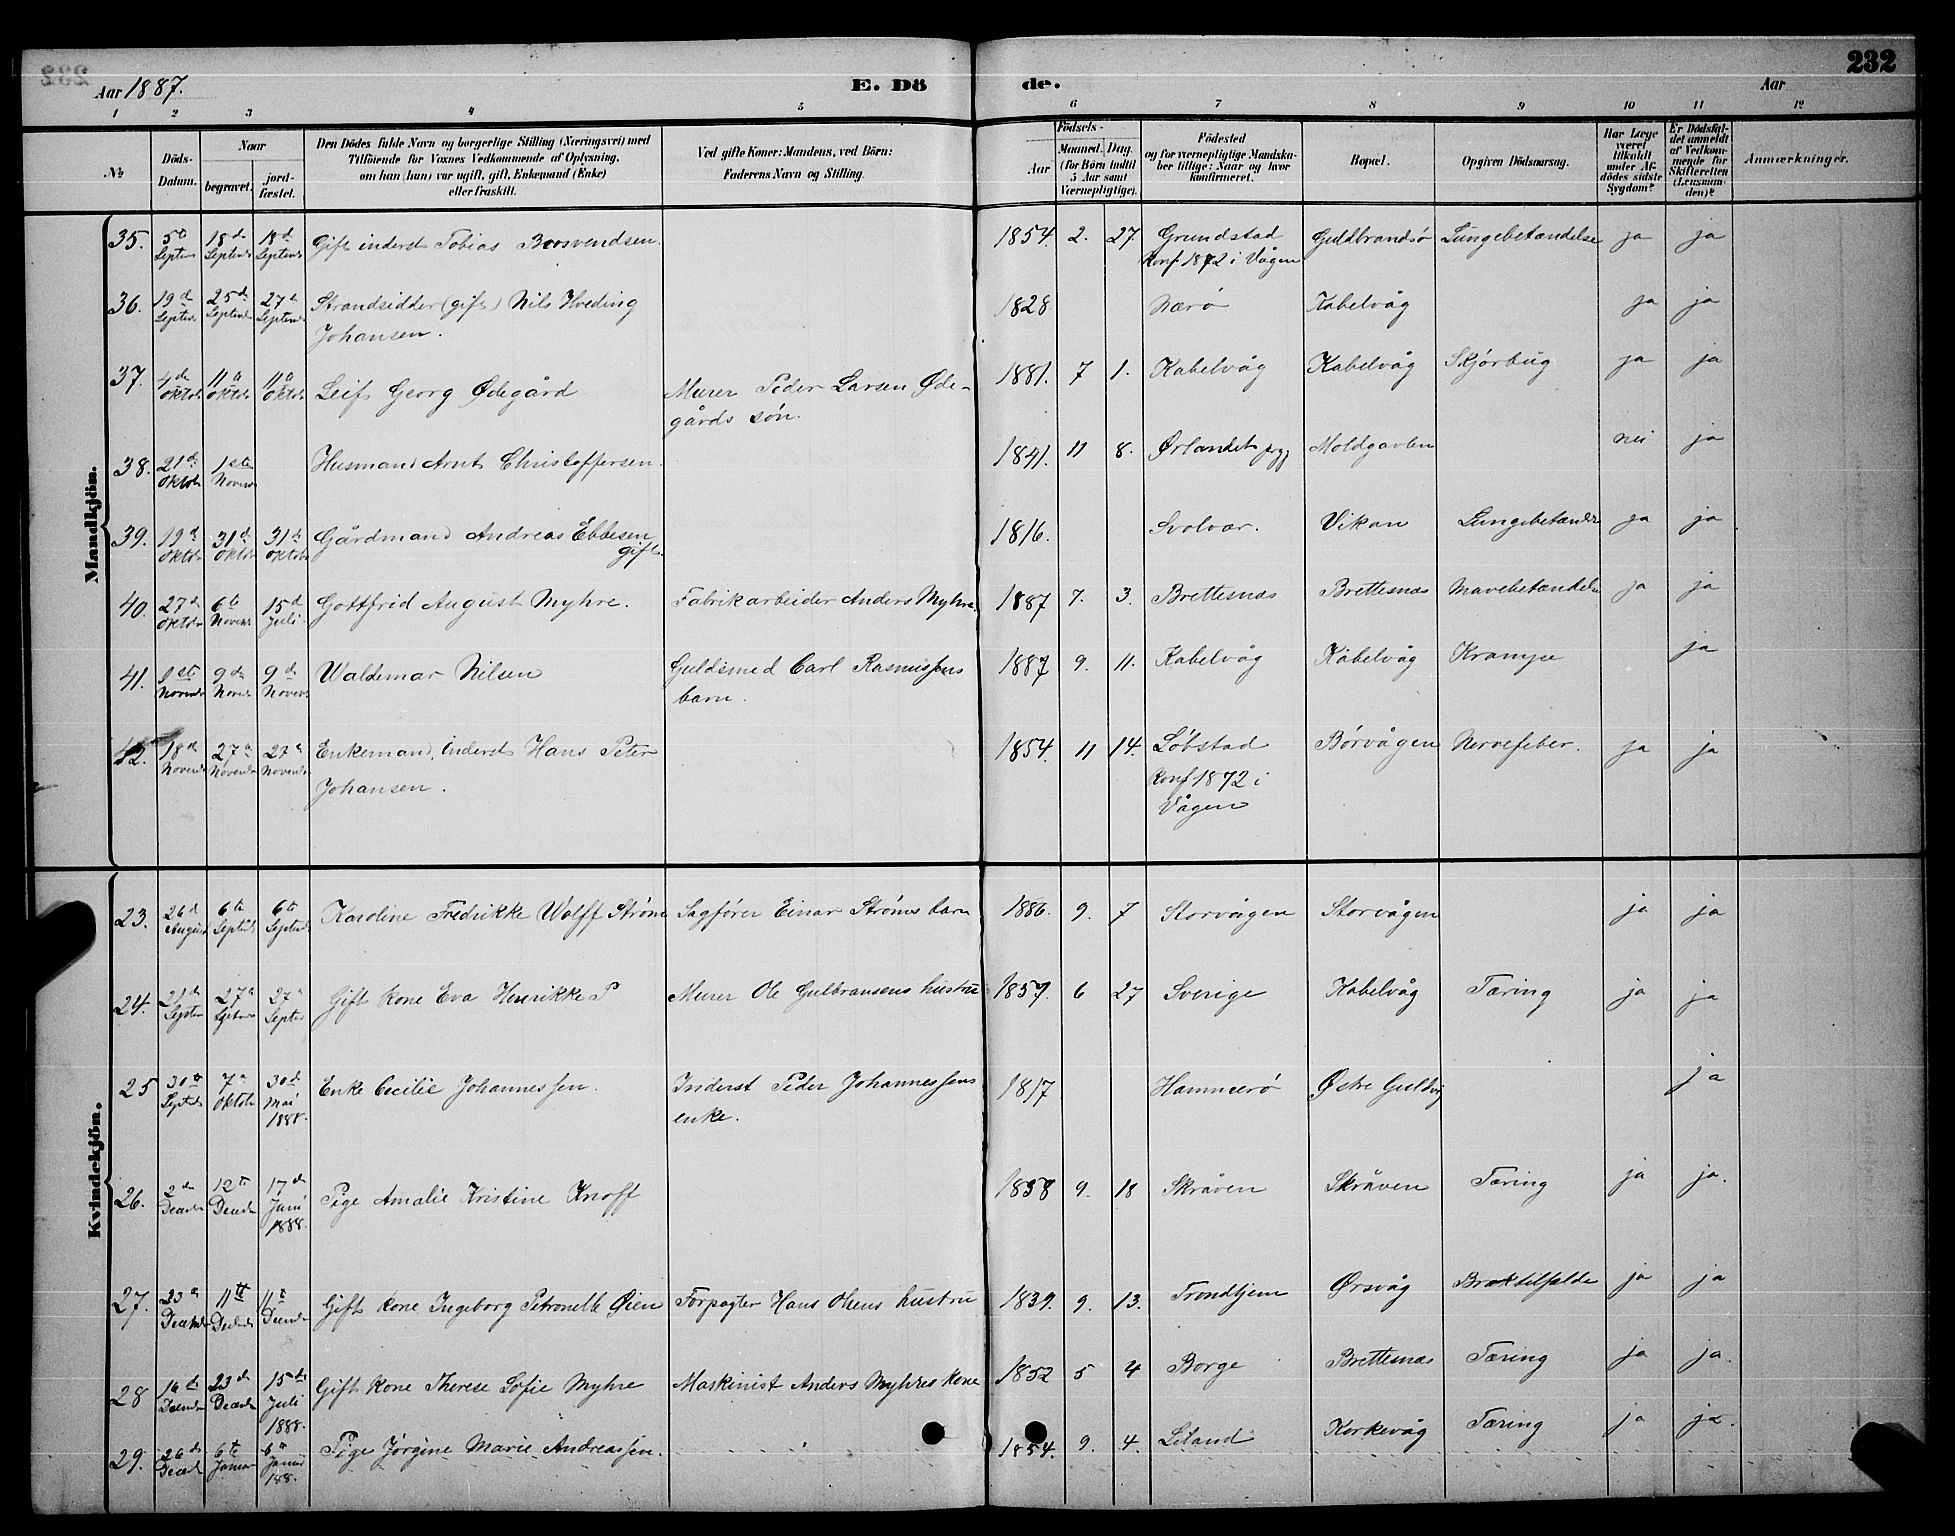 232
Aar 1887. E. Dö de. Aar
1 2 3 4 5 6 7 8 9 10 11 12
No
Döds-Datum.
Naar
begravet.
jord-fæstet.
Den Dödes fulde Navn og borgerlige Stilling (Næringsvei) med
Tilföiende for Voxnes Vedkommende af Oplysning,
om han (hun) var ugift, gift, Enkemand (Enke)
eller fraskilt.
Ved gifte Koner: Mandens, ved Börn:
Faderens Navn og Stilling.
Födsels-
Aar
Maaned. Dag.
(for Börn indtil
5 Aar samt
Værnepligtige).
Födested
og for værnepligtige Mandska-
ber tillige: Naar og hvor
konfirmeret.
Bopæl.
Opgiven Dödsaarsag.
Har Læge
været
tilkaldt
under Af-
dödes sidste
Sygdom?
Er Dödsfal-
det anmeldt
af Vedkom-
mende for
Skifteretten
(Lensman-
den)?
Anmærkninger.
Mandkjön.
35. 5te Septem 18d Septemb 18d Septemb Gift inderst Tobias Brosvendsen. 1854 2. 27. Grundstad Guldbrandsö Lungebetændelse ja ja
Konf 1872 i Vågen
36. 19d Septem 25d Septemb 27d Septemb Strandsidder (gift) Nils Hveding 1828 Nærö Kabelvåg ja ja
Johansen.
37. 4de Oktob 11te Oktob 11te Oktob Leif Georg Ødegård Murer Peder Larsen Øde- 1881. 7 1. Kabelvåg Kabelvåg Skjörbug ja ja
gårds sön.
38. 21d Oktob 1ste Novemb Husmand Arnt Christoffersen. 1841. 11 8. Ørlandet Moldgavlen nei ja
39. 19d Oktob 31d Oktob 31te Oktob Gårdmand Andreas Ebbesen 1816. Svolvær. Vikan Lungebetændelse ja ja
gift.
40. 27d Oktob 6te Novemb 15d Juli Gottfrid August Myhre. Fabrikarbeider Anders Myhre. 1887 7. 3. Brettesnæs Brettesnæs Mavebetændelse ja ja
41. 1ste Novemb 9de Novemb 9d Novemb Waldemar Nilsen Guldsmed Carl Rasmussens 1887 9. 11. Kabelvåg Kabelvåg Krampe ja
barn.
42. 18d Novemb 27d Novemb 27d Novemb Enkemand, inderst Hans Peter 1854. 11 14. Löbstad Börvågen Nervefeber. ja ja
Johansen. Konf 1872 i
Vågen
Kvindekjön.
23. 26d August 6te Septemb 6te Septemb Karoline Fredrikke Wolff Ström Sagförer Einar Ströms barn 1886. 9. 7 Storvågen Storvågen ja ja
24. 21d Septem 27d Septem 27d Septem Gift kone Eva Henrikke P Murer Ole Gulbransens hustru 1859. 6 27 Sverige Kabelvåg Tæring ja ja
25 30te Septemb 7d Oktob 30d Mai 1888. Enke Cecilie Johannessen. Inderst Peder Johannessens 1817 Hammerö Østre Guldvig ja
enke.
26. 2den Decemb 12te Decemb 17d Juni 1888. Pige Amalie Kristine Knoff 1858 9. 18 Skråven Skråven Tæring ja ja.
27. Decemb 11te Decemb 11te Decemb Gift kone Ingeborg Petronelle Øien Forpagter Hans Øiens hustru 1839. 9. 13. Trondhjem Ørsvåg ja ja
28 16d Decemb 23d Decemb 15de Juli 1888. Gift kone Therese Sofie Myhre Maskinist Anders Myhres kone 1852 5 4 Borge Brettesnæs Tæring ja ja.
29. 26d Decemb 6te Januar 6te Januar 188. Pige Jörgine Marie Andreassen. 1854. 9. 4. Liland Korkevåg Tæring ja ja.